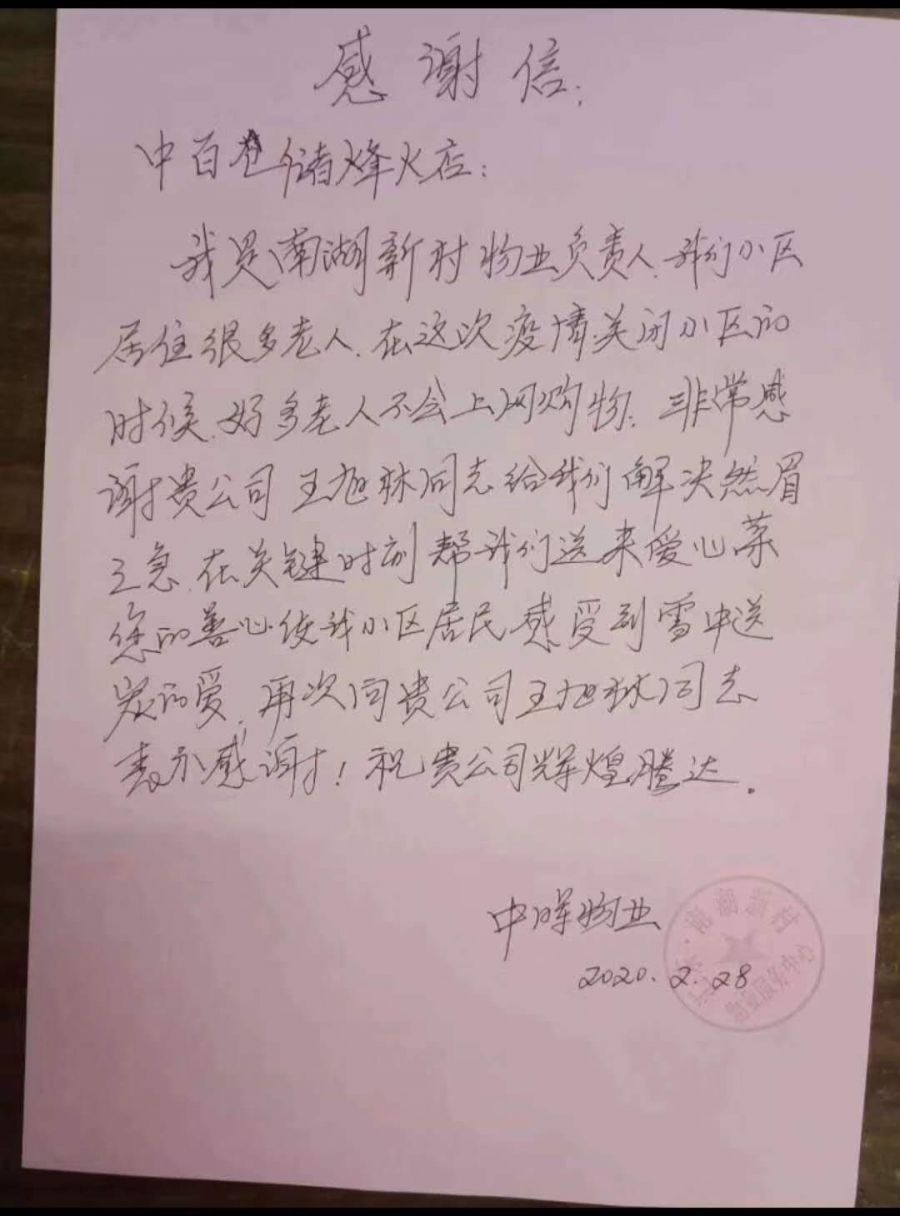 感谢信:
中百仓储烽火店:
我是南湖新村物业负责人.我们小区
居住很多老人.在这次疫情关闭小区的
时候.好多老人不会上网购物.非常感
谢贵公司王旭林同志给我们解决然眉
之急.在关键时刻帮我们送来爱心菜
您的善心使我小区居民感受到雪中送
炭的爱.再次向贵公司王旭林同志
表示感谢!祝贵公司辉煌腾达.
中晖物业
2020.2.28
南湖新村
物业服务中心